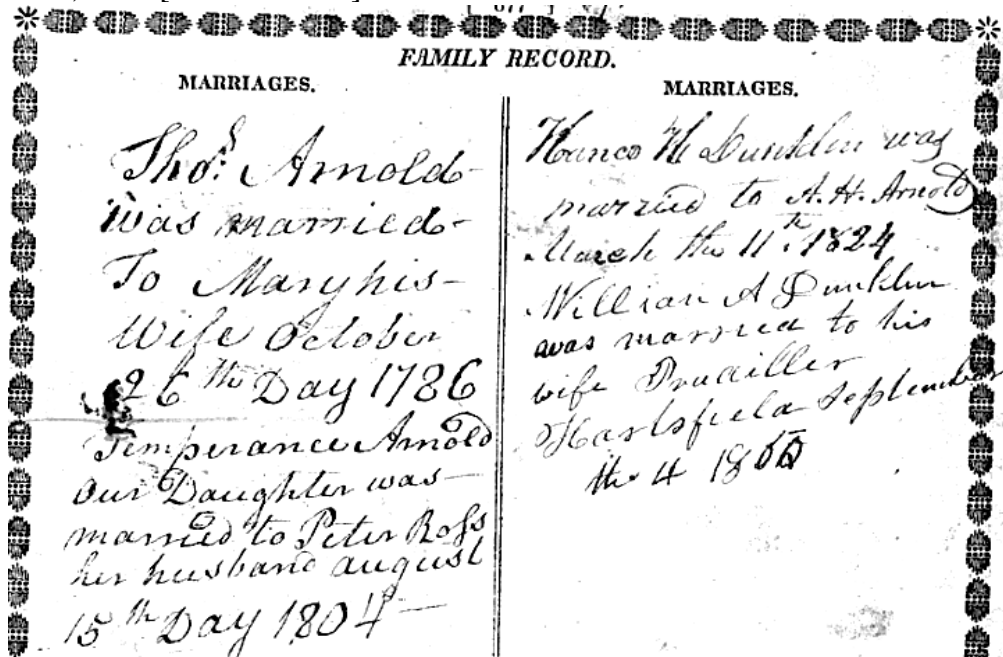 FAMILY RECORD.
MARRIAGES.
Thos. Arnold
was married
To Mary his
Wife October
26th Day 1786
Temperance Arnold
Our Daughter was
married to Peter Ross
her husband august
15th Day 1804
MARRIAGES.
H Dunklin was
married to A. H. Arnold
March the 11th 1824
William A Dunklin
was married to his
wife
Hartsfield September
the 4